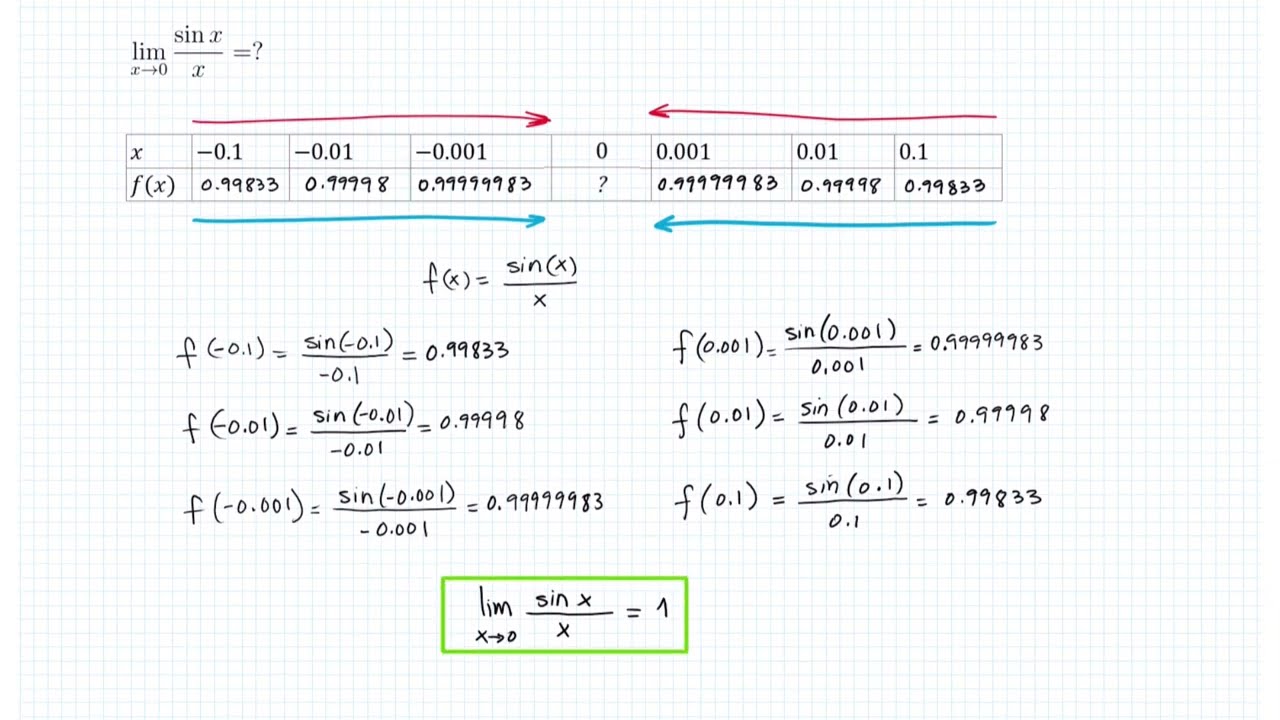 lim x→0 sin x / x =?
x −0.1 −0.01 −0.001 0 0.001 0.01 0.1
f(x) 0.99833 0.99998 0.99999983 ? 0.99999983 0.99998 0.99833
f(x) = sin(x) / x
f(-0.1) = sin(-0.1) / -0.1 = 0.99833
f(0.001) = sin(0.001) / 0.001 = 0.99999983
f(-0.01) = sin(-0.01) / -0.01 = 0.99998
f(0.01) = sin(0.01) / 0.01 = 0.99998
f(-0.001) = sin(-0.001) / -0.001 = 0.99999983
f(0.1) = sin(0.1) / 0.1 = 0.99833
lim x→0 sin x / x = 1